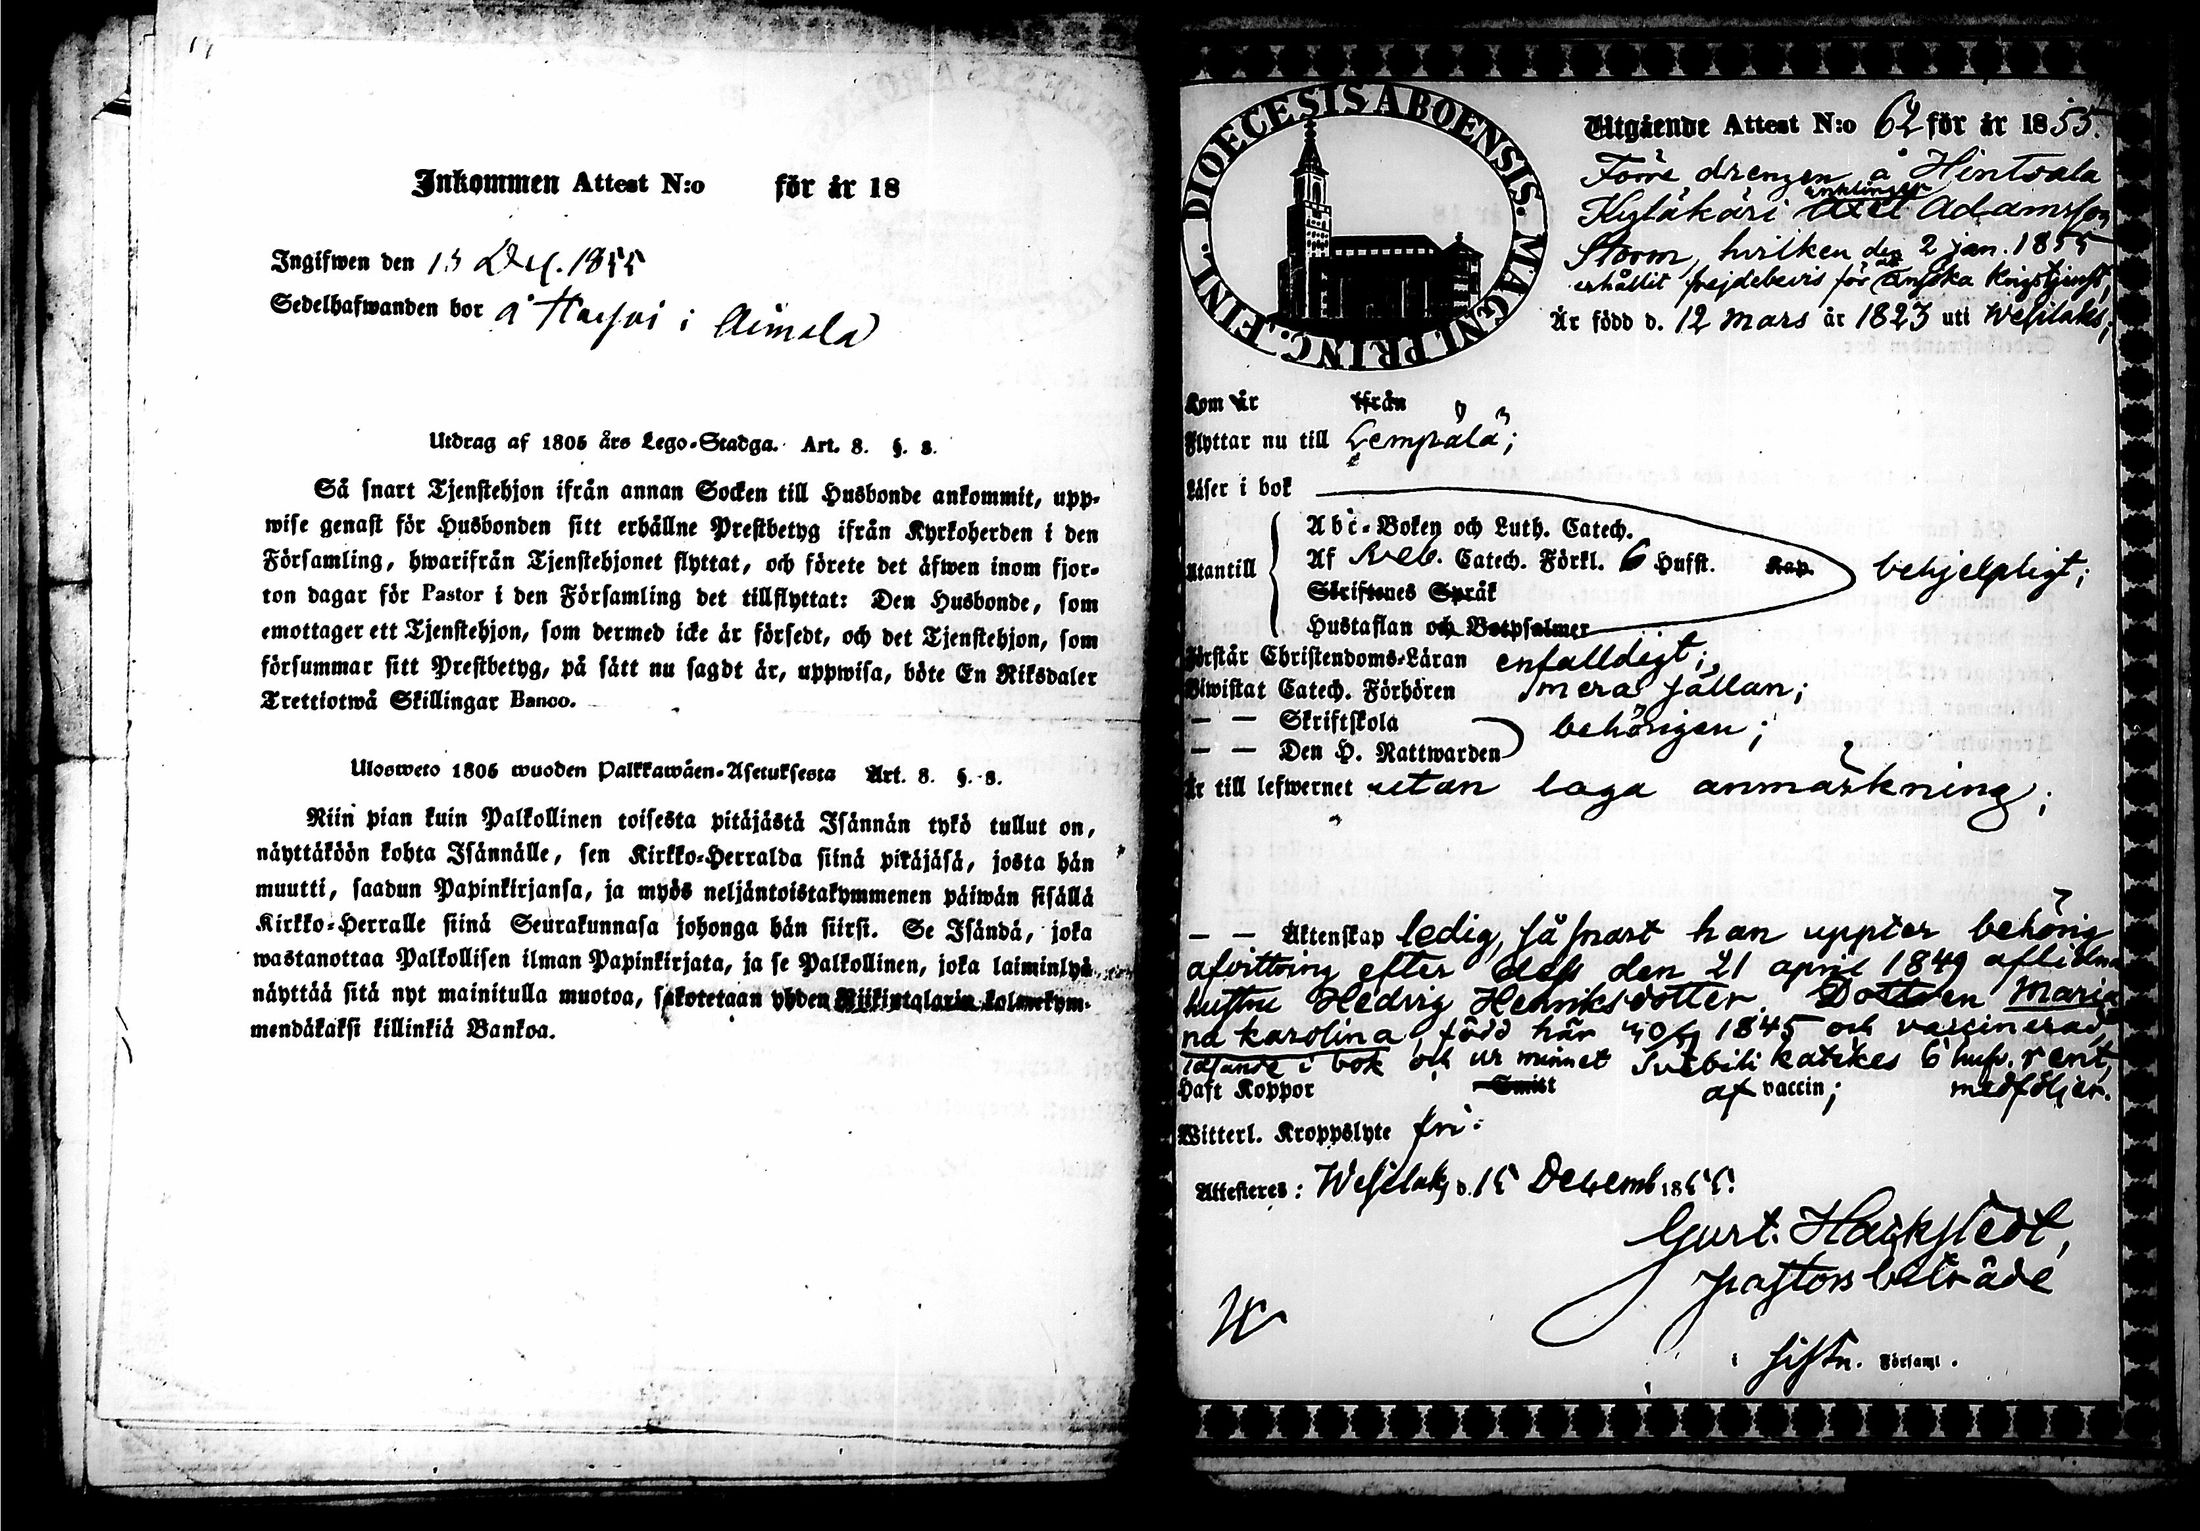 Inkommen Attest N:o för år 18
Ingifwen den 15 Dec. 1855
Sedelhafwanden bor å i Aimala
Utdrag af 1805 års Lego-Stadga. Art. 8. §. 8.
Så snart Tjenstehjon ifrån annan Socken till Husbonde ankommit, upp-
wise genast för Husbonden sitt erhållne Prestbetyg ifrån Kyrkoherden i den
Församling, hwarifrån Tjenstehjonet flyttat, och förete det äfwen inom fjor-
ton dagar för Pastor i den Församling det tillflyttat: Den Husbonde, som
emottager ett Tjenstehjon, som dermed icke är försedt, och det Tjenstehjon, som
försummar sitt Prestbetyg, på sätt nu sagdt är, uppwisa, böte En Riksdaler
Trettiotwå Skillingar Banco.
Ulosweto 1805 wuoden Palkkawäen-Asetuksesta Art. 8. §. 8.
Niin pian kuin Palkollinen toisesta pitäjästä Isännän tykö tullut on,
näyttäköön kohta Isännälle, sen Kirkko-Herralda siinä pitäjäsä, josta hän
muutti, saadun Papinkirjansa, ja myös neljäntoistakymmenen päiwän sisällä
Kirkko-Herralle siinä Seurakunnasa johonga hän siirsi. Se Isändä, joka
wastanottaa Palkollisen ilman Papinkirjata, ja se Palkollinen, joka laiminlyö
näyttää sitä nyt mainitulla muotoa, sakotetaan yhden Riikintalarin kolmekym-
mendäkaksi killinkiä Bankoa.
FINL. DIOECESIS ABOENSIS. MAGNI PRINC.
Utgående Attest N:o 62 för år 1855.
Förre drengen å Hintsala
Kyläkäri enklingen Axel Adamsson
Storm, hvilken den 2 jan. 1855
erhållit frejdebevis för att Krigstjenst,
Är född d. 12 Mars år 1823 uti Wesilaks;
Kom år ifrån
Flyttar nu till Lempälä;
Läser i bok
Abc-Boken och Luth. Catech.
Utantill Af Sveb. Catech. Förkl. 6 Hufst. Kap. behjelpligt;
Skriftenes Språk
Hustaflan och Botpsalmer
Förstår Christendoms-Läran enfalldigt;
Biwistat Catech. Förhören mera sällan;
— — Skriftskola
behörigen;
— — Den H. Nattwarden
Är till lefwernet utan laga anmärkning;
— — Äktenskap ledig, så snart han uppter behörig
afvittring efter dess den 21 april 1849 aflidna
hustru Hedvig Henriksdotter. Dottren Maria
na Karolina, född här 1845 och vaccinerad,
läsande i bok och ur minnet Svebili katekes 6 hufv. rent,
Haft Koppor Smitt af vaccin; medföljer.
Witterl. Kroppslyte fri:
Attesteres: Wesilaks d. 15 Decemb 1855.
Gust. Hackstedt,
pastors biträde
i Församl.